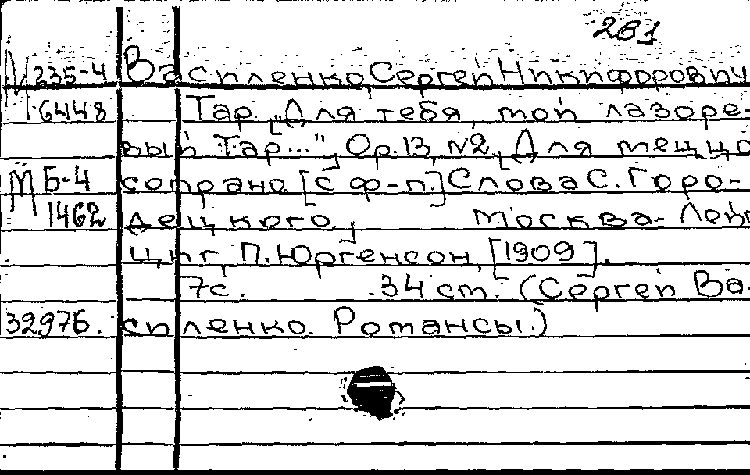 281
М 235-4 Василенко, Сергей Никифорович
6448 Тар. [„Для тебя, мой лазоре-
вый Тар..."], Op.13, №2, Для меццо
М Б-4 сопрано [с ф-п.] Слова С. Горо-
1462 децкого, Москва-Лейп
циг, П. Юргенсон, [1909].
7с. 34 cm. (Сергей Ва-
32976. силенко. Романсы.)